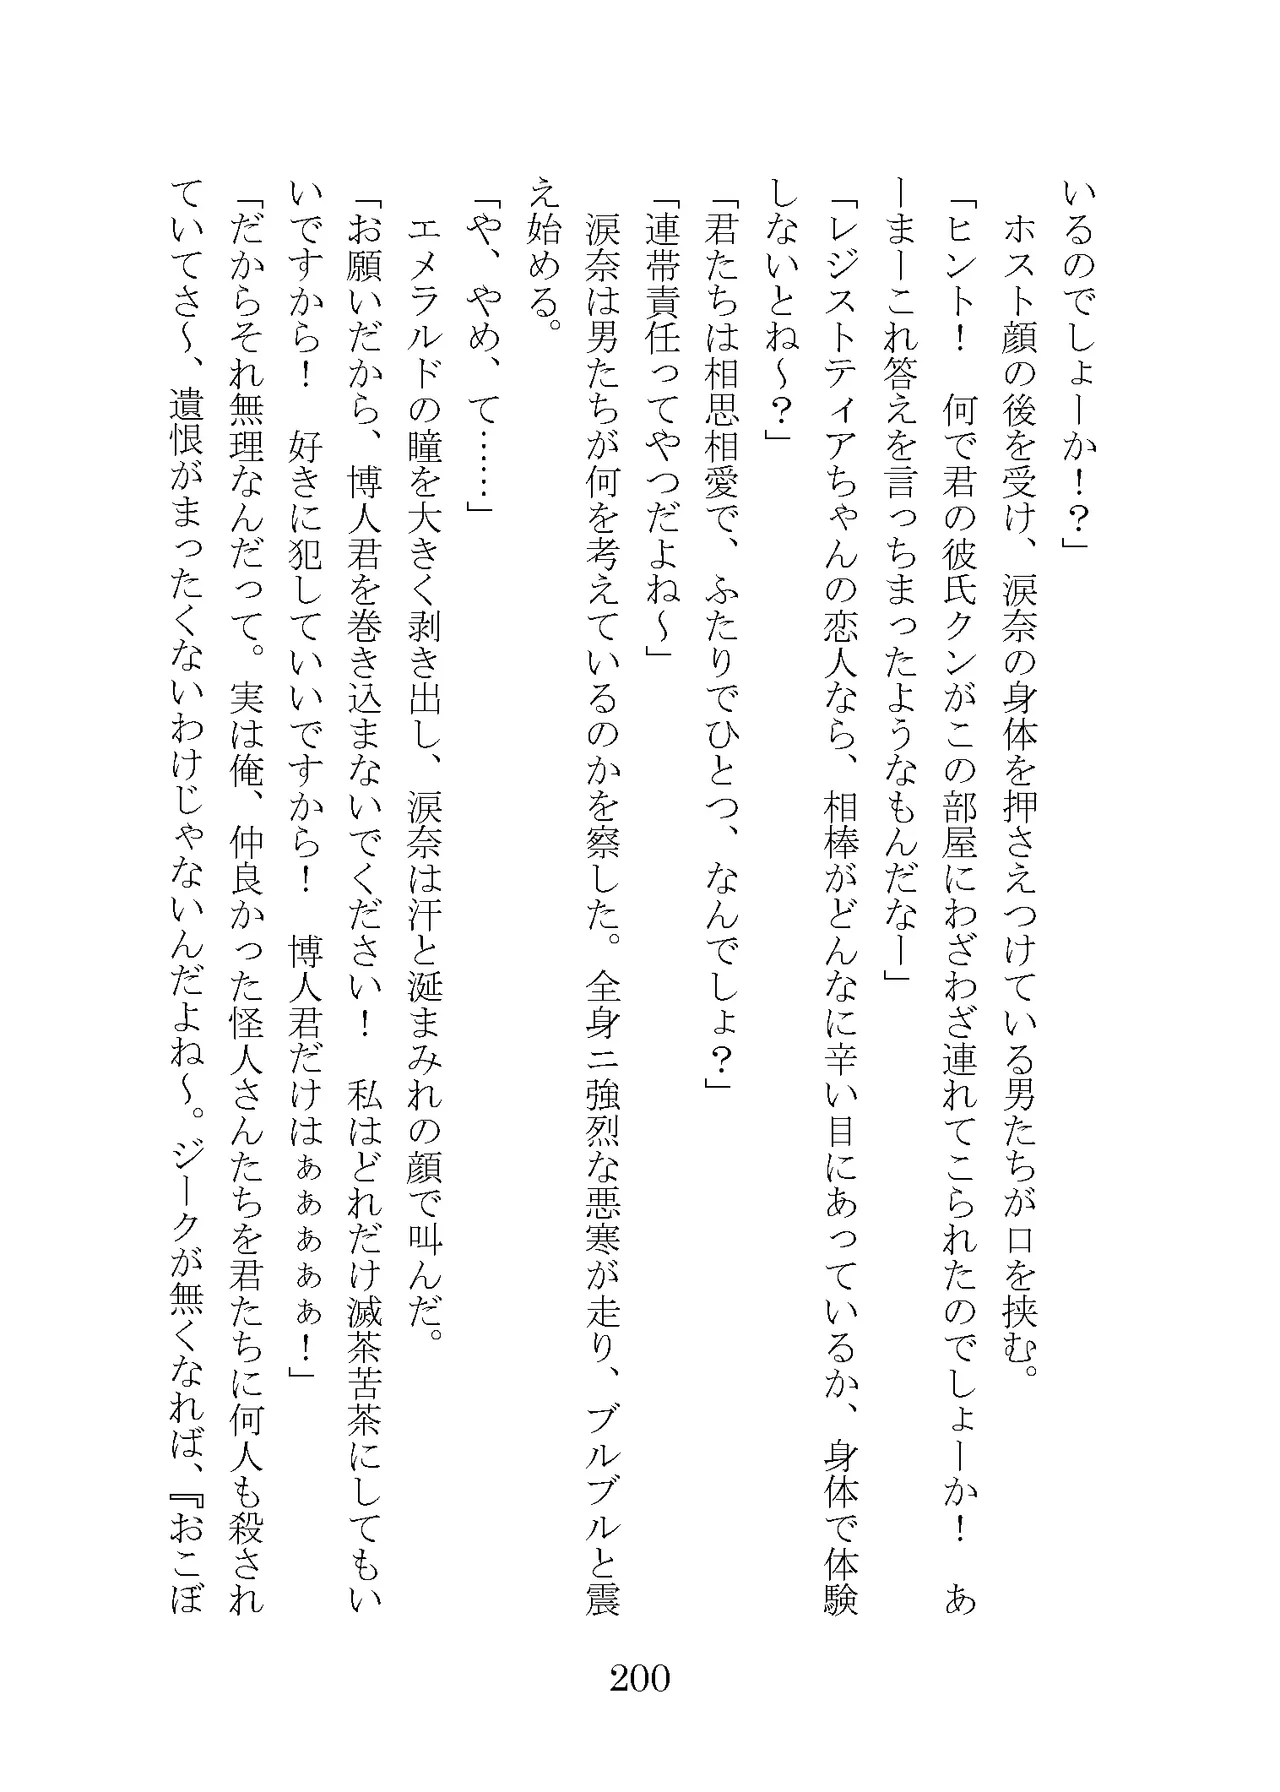 いるのでしょーか！？」
　ホスト顔の後を受け、涙奈の身体を押さえつけている男たちが口を挟む。
「ヒント！　何で君の彼氏クンがこの部屋にわざわざ連れてこられたのでしょーか！　あ
ーまーこれ答えを言っちまったようなもんだなー」
「レジスティアちゃんの恋人なら、相棒がどんなに辛い目にあっているか、身体で体験
しないとね～？」
「君たちは相思相愛で、ふたりでひとつ、なんでしょ？」
「連帯責任ってやつだよね～」
　涙奈は男たちが何を考えているのかを察した。全身ニ強烈な悪寒が走り、ブルブルと震
え始める。
「や、やめ、て……」
　エメラルドの瞳を大きく剥き出し、涙奈は汗と涎まみれの顔で叫んだ。
「お願いだから、博人君を巻き込まないでください！　私はどれだけ滅茶苦茶にしてもい
いですから！　好きに犯していいですから！　博人君だけはぁぁぁぁぁ！」
「だからそれ無理なんだって。実は俺、仲良かった怪人さんたちを君たちに何人も殺され
ていてさ～、遺恨がまったくないわけじゃないんだよね～。ジークが無くなれば、『おこぼ
200